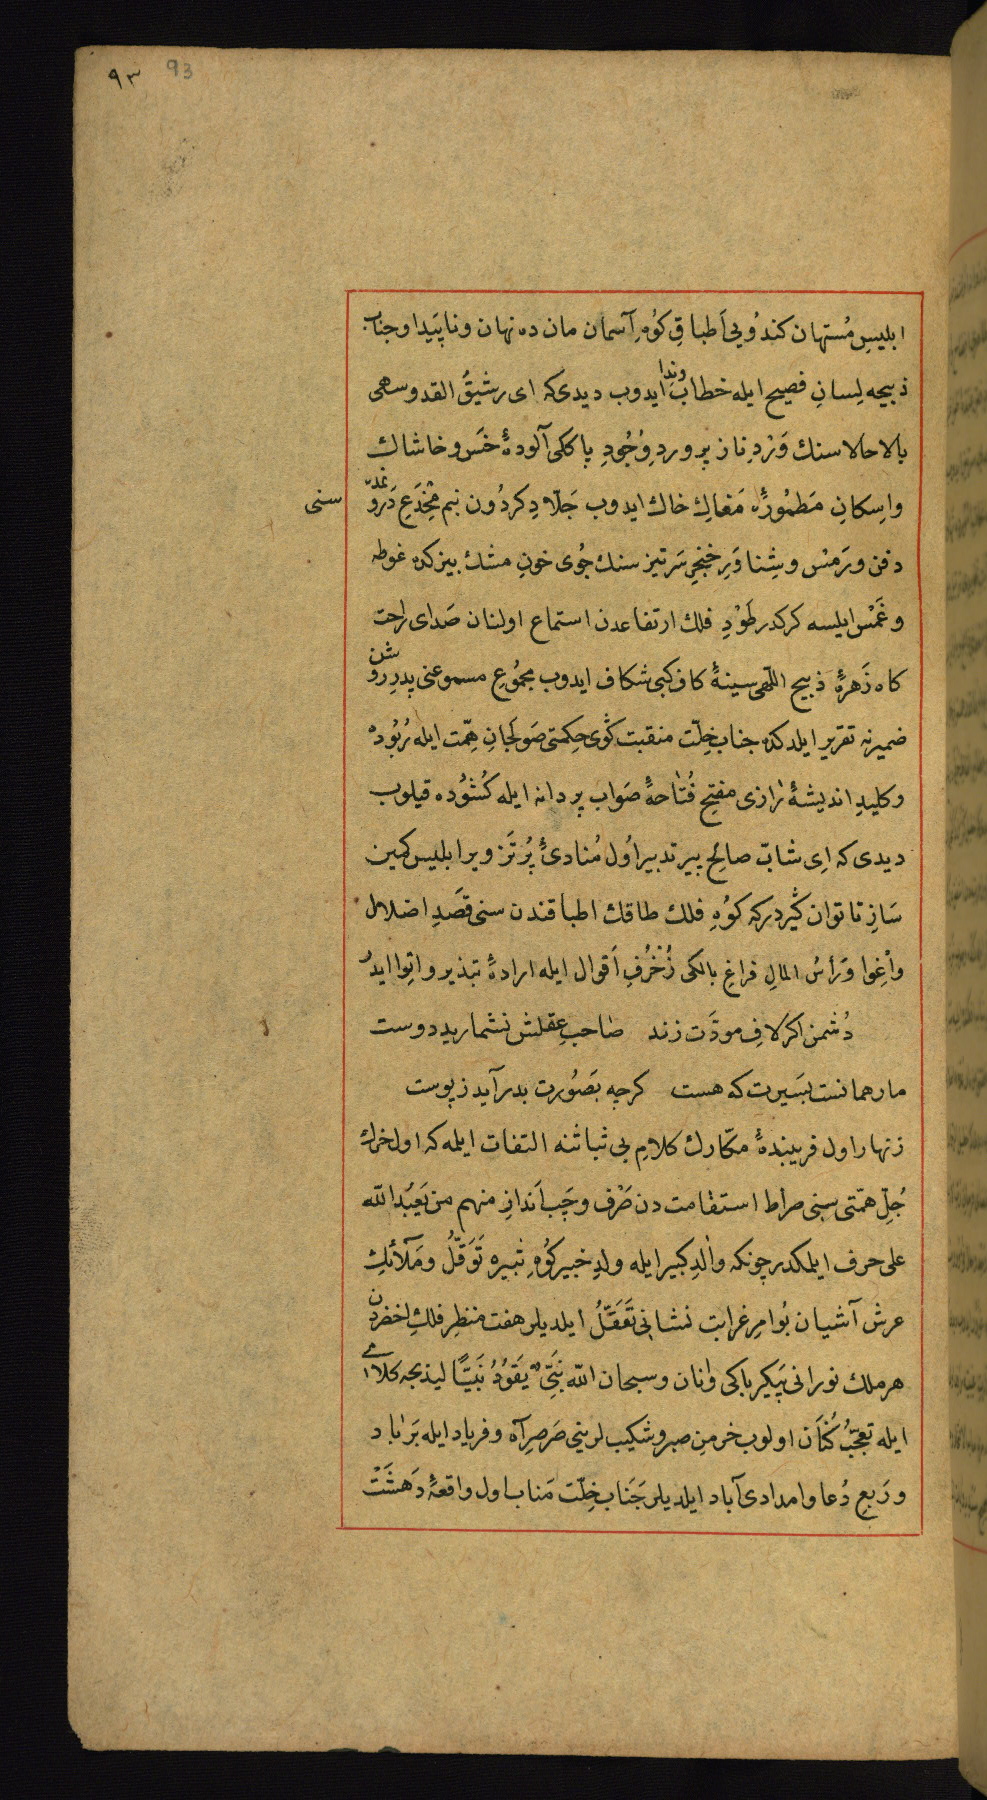 ٩٣ 93
ابلیسِ مُستهان کندُویی اَطباقِ کوُهِ آسمان مان ده نهان و ناپَیدا و جناب
ذبیحه لِسانِ فصیح ایله خطاب وندا ایدوب دیدی که ای رشیقُ القد و سهی
بالا حالا سنك وَرْدِ ناز پرورد وُجُودِ پاککی آلودهٔ خَس و خاشاك
و اسکانِ مَطمُورَهٔ مَغاكِ خاك ایدوب جَلّادِ کردُون نیم مِخْدَعِ
سنی
دفن و رَمْس و شِناوَرِ خنجرِ سَرتیز سنك جُوی خونِ مشك بیزکده غوطه
و غَمْس ایلسه کرکدر طَوْدِ فلك ارتفاعدن استماع اولنان صَدای راحت
کاه زَهرهٔ ذبیح اللّهی سینهٔ کاف کبی شکاف ایدوب مجمُوعِ مسموعنی پدرِ روشن
ضمیرنه تقریر ایلدکده جناب خِلّت منقبت کُوی حِکمتی صَولَجانِ هِمّت ایله رُبُوده
و کلیدِ اندیشهٔ نرازی مفتِحِ فُتاحهٔ صَواب پردانه ایله کُشوُده قیلوب
دیدی که اِی شابّ صالحِ پیر تدبیر اوُل مُنادیٔ پُرتَزویر ابلیس کمین
سَازِ ناتوان کیردرکه کوُهِ فلك طاقك اطباقندن سنی قصَدِ اضلال
و اِغوا و رَأسُ المالِ فراغِ بالکی زُخرُفِ اَقوال ایله ارادهٔ تبذیر و اتِوا ایدر
دُشمن اکر لافِ مودّت زند صاحبِ عقلش نشمارید دوست
مار همانست بسَیرت که هست کرچه بصَوُرت بدر آید ز پوست
زنهار اول فریبندهٔ مکّارك کلامِ بی ثباتنه التفات ایلمه که اول خرك
جُلِّ همّتی سنی صراط استقامت دن صَرْف و چَپ اَندازِ منهم من یَعْبُد الله
علی حرف ایلمکدر چونکه والدِ کبیر ایله ولدِ خبیر کوُهِ ثبیره تَوَقّلُ و مَلآئكِ
عرش آشیان بُوامرِ غرابت نشانی تَعَقّلُ ایلدیلر هفت منظِر فلكِ اخضردن
هر ملك نورانی پَیکر باکی وانان و سبحان الله نَبِیٌّ یَقوُدُ نَبِیًّا لیذبحه کلامی
ایله تعجّبُ کُنَان اولوب خرمنِ صبر و شکیب لرینی صَرصِرِ آه و فریاد ایله بَر باد
و رَبعِ دُعا و امدادی آباد ایلدیلر جَنَاب خِلّت مَناب اول واقعهٔ دَهشَتْ